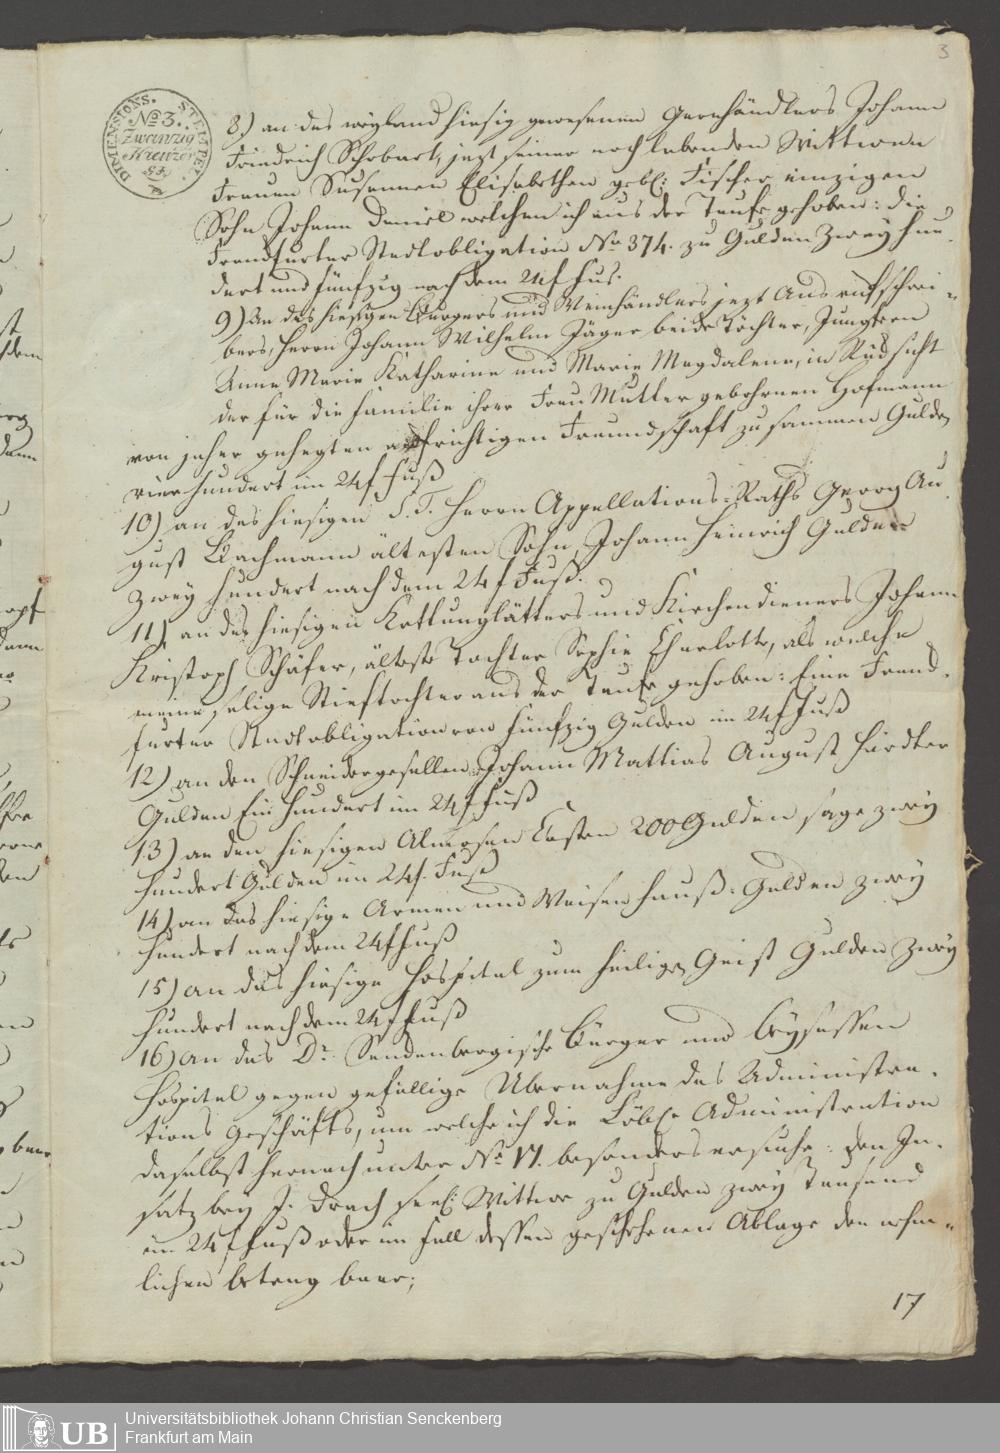 3
DIMENSIONS. STEMPEL.
No 3.
Zwanzig
Kreuzer
8.) an des weyland hiesig gewesenen Garnhändlers Johann
Friedrich Schobart, jezt seiner noch lebenden Wittwen
Frauen Susannen Elisabethen geb: Fischer einzigen
Sohn Johann Daniel welchen ich aus der Taufe gehoben: die
Frankfurter Stadtobligation No 374. zu Gulden Zwey hun-
dert und fünfzig nach dem 24 f Fus.
9) An des hiesigen Burgers und Weinhändlers jezt Ausrufschrei=
bers, Herrn Johann Wilhelm Jäger beide Töchter, Jungfern
Anna Maria Katharina und Maria Magdalena, in Rücksicht
der für die Familie ihrer Frau Mutter gebohrnen Hofmann
von jeher gehegten aufrichtigen Freundschaft zusammen Gulden
vierhundert im 24 f Fuß
10) an des hiesigen S. T. Herrn Appellations-Raths Georg Au
gust Bachmann ältesten Sohn, Johann Heinrich Gulden
zwey hundert nach dem 24 f Fuß.
11) an des hiesigen Kattunglätters und Kirchendieners Johann
Kristoph Schäfer, älteste Tochter Sophie Charlotte, als welche
meine selige Stieftochter aus der Taufe gehoben: Eine Frank-
furter Stadtobligation von fünfzig Gulden im 24 f Fuß
12) an den Schneidergesellen Johann Mattias August Härdter
Gulden Ein hundert im 24 f Fuß
13) an den hiesigen Almosen Kasten 200 Gulden sage zwey
hundert Gulden im 24 f. Fuß
14) an das hiesige Armen und Waisenhauß: Gulden zwey
hundert nach dem 24 f Fuß
15) an das hiesige Hospital zum heilige Geist Gulden zwey
hundert nach dem 24 f Fuß
16) an das Dr. Senckenbergische Bürger und Beysassen
Hospital gegen gefällige Übernahme des Administra-
tions Geschäfts, um welche ich die Löbl. Administration
daselbst hernach unter No 17. besonders ersuche: den In-
satz bey J. Drach seel: Wittwe zu Gulden zwey Tausend
im 24 f Fuß oder im Fall dessen geschehenen Ablage den nehm=
lichen betrag baar;
17
UB
Universitätsbibliothek Johann Christian Senckenberg
Frankfurt am Main